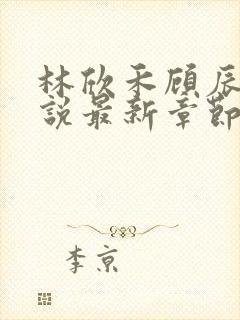 林欣禾顾辰
說最新章節
李京